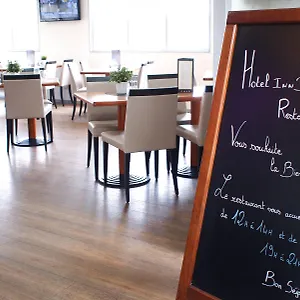 Hotel Inn
Resta
Vous souhaite
la Bie
Le restaurant vous accue
de 12h à 14h et de
19h à 21h
Bon Séj